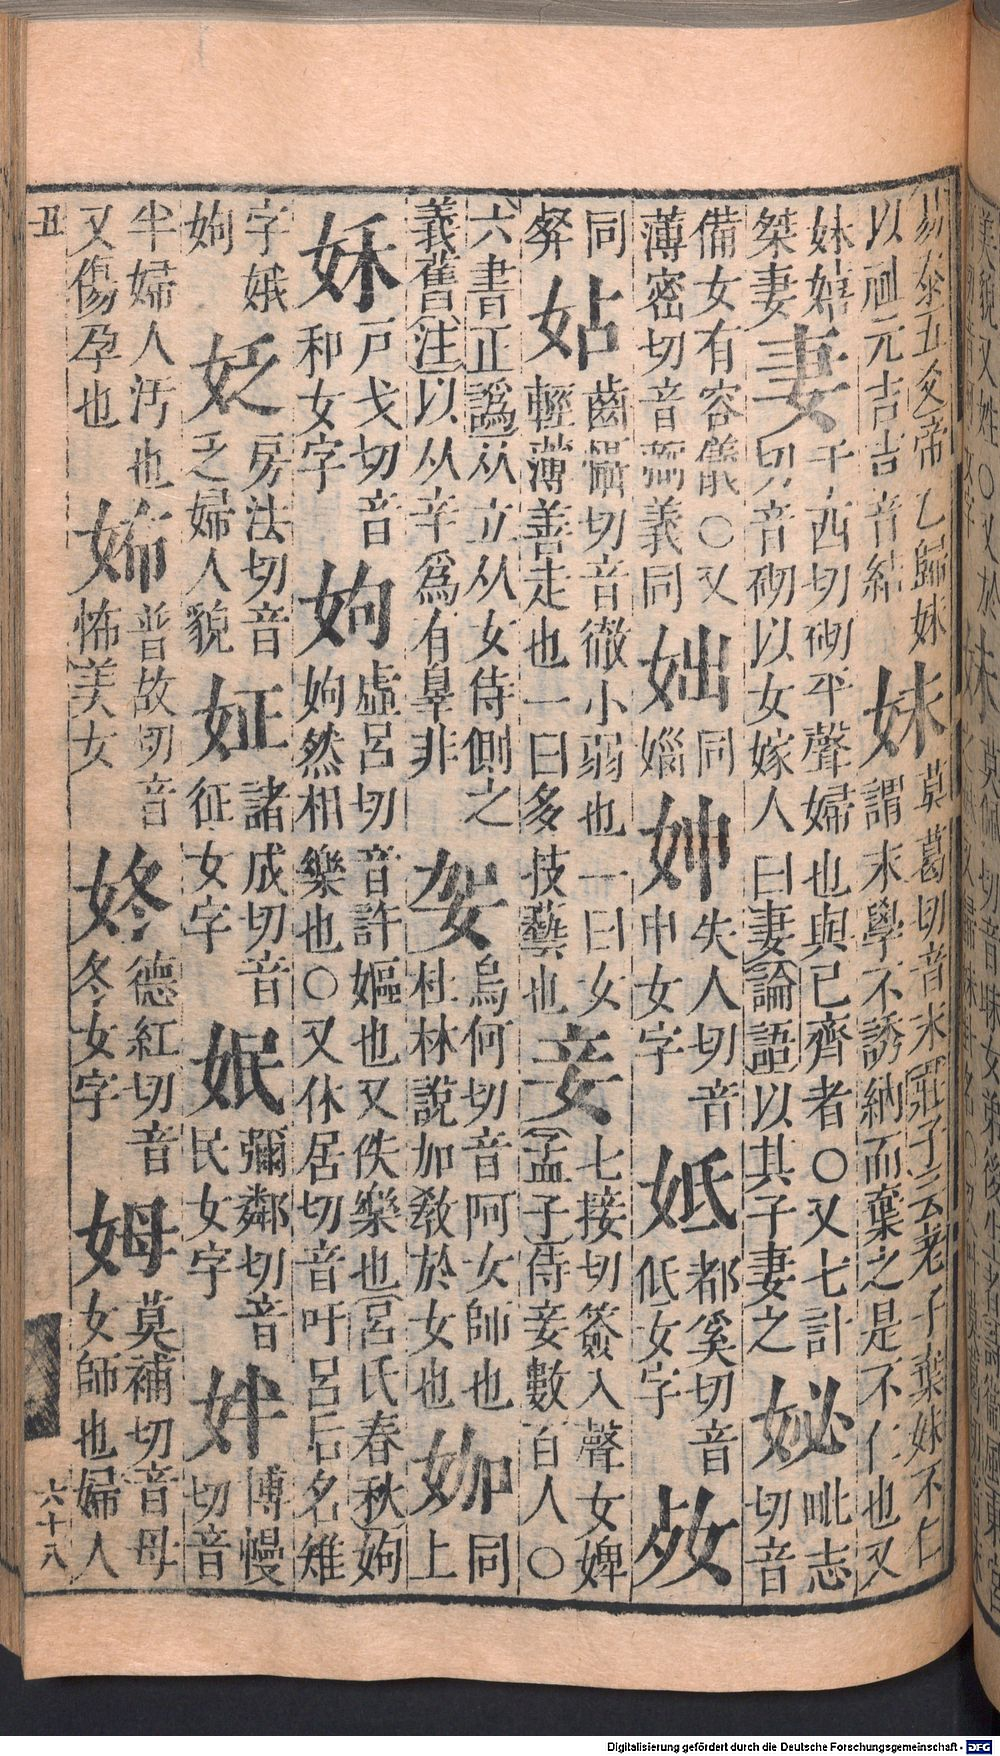 易泰五爻帝乙歸妹
以祉元吉吉音結
妹
莫葛切音末莊子云老子棄妹不仁
謂末學不誘納而棄之是不仁也又
妹嬉
桀妻
妻
千西切砌平聲婦也與已齊者○又七計
切音砌以女嫁人曰妻論語以其子妻之
妼
毗志
切音
備女有容儀○又
薄密切音弼義同
㚴
同
媼
妽
失人切音
申女字
妷
都奚切音
低女字
㚣
同
姦
姑
齒懾切音徹小弱也一曰女
輕薄善走也一曰多技藝也
妾
七接切簽入聲女婢
孟子侍妾數百人○
六書正譌从立从女侍側之
義舊注以从辛爲有辠非
㛂
烏何切音阿女師也
杜林說加敎於女也
妿
同
上
妚
戸戈切音
和女字
姁
虛呂切音許嫗也又佚樂也呂氏春秋姁
姁然相樂也○又休居切音吁呂后名雉
字娥
姁
姂
房法切音
乏婦人貌
姃
諸成切音
征女字
姄
彌鄰切音
民女字
姅
博慢
切音
半婦人汚也
又傷孕也
㛁
普故切音
怖美女
㚵
德紅切音
冬女字
姆
莫補切音母
女師也婦人
丑
六十八
Digitalisierung gefördert durch die Deutsche Forschungsgemeinschaft - DFG